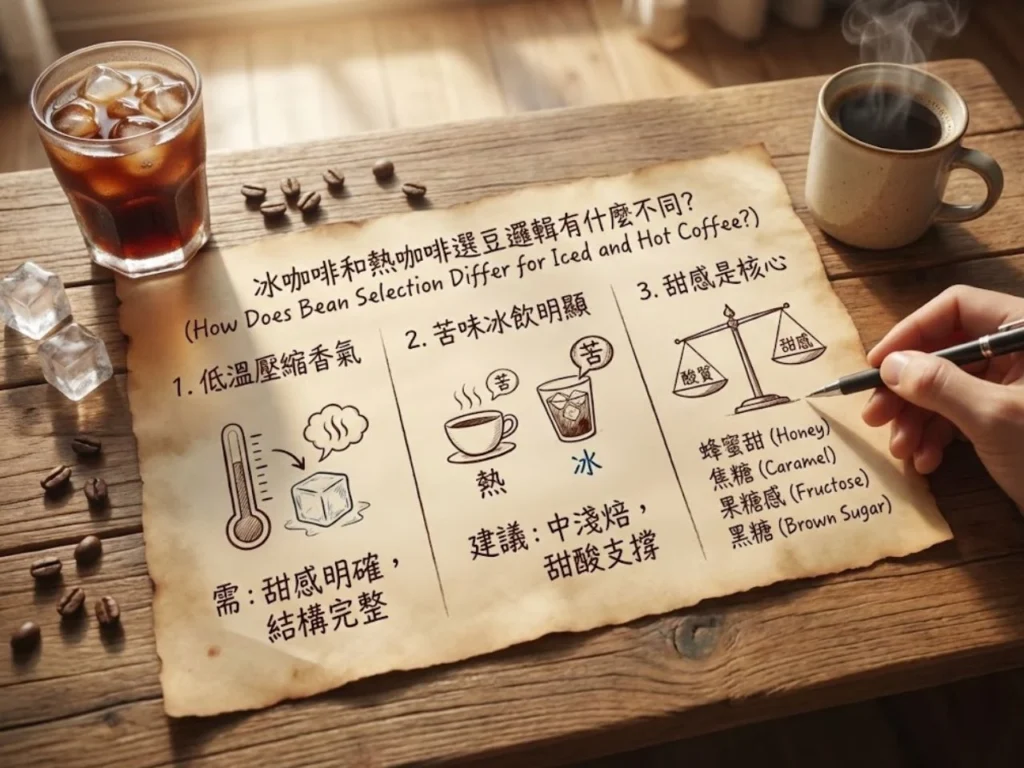 冰咖啡和熱咖啡選豆邏輯有什麼不同?
(How Does Bean Selection Differ for Iced and Hot Coffee?)
1. 低溫壓縮香氣
需：甜感明確，
結構完整
2. 苦味冰飲明顯
苦
苦
熱
冰
建議：中淺焙，
甜酸支撐
3. 甜感是核心
酸質
甜感
蜂蜜甜 (Honey)
焦糖 (Caramel)
果糖感 (Fructose)
黑糖 (Brown Sugar)